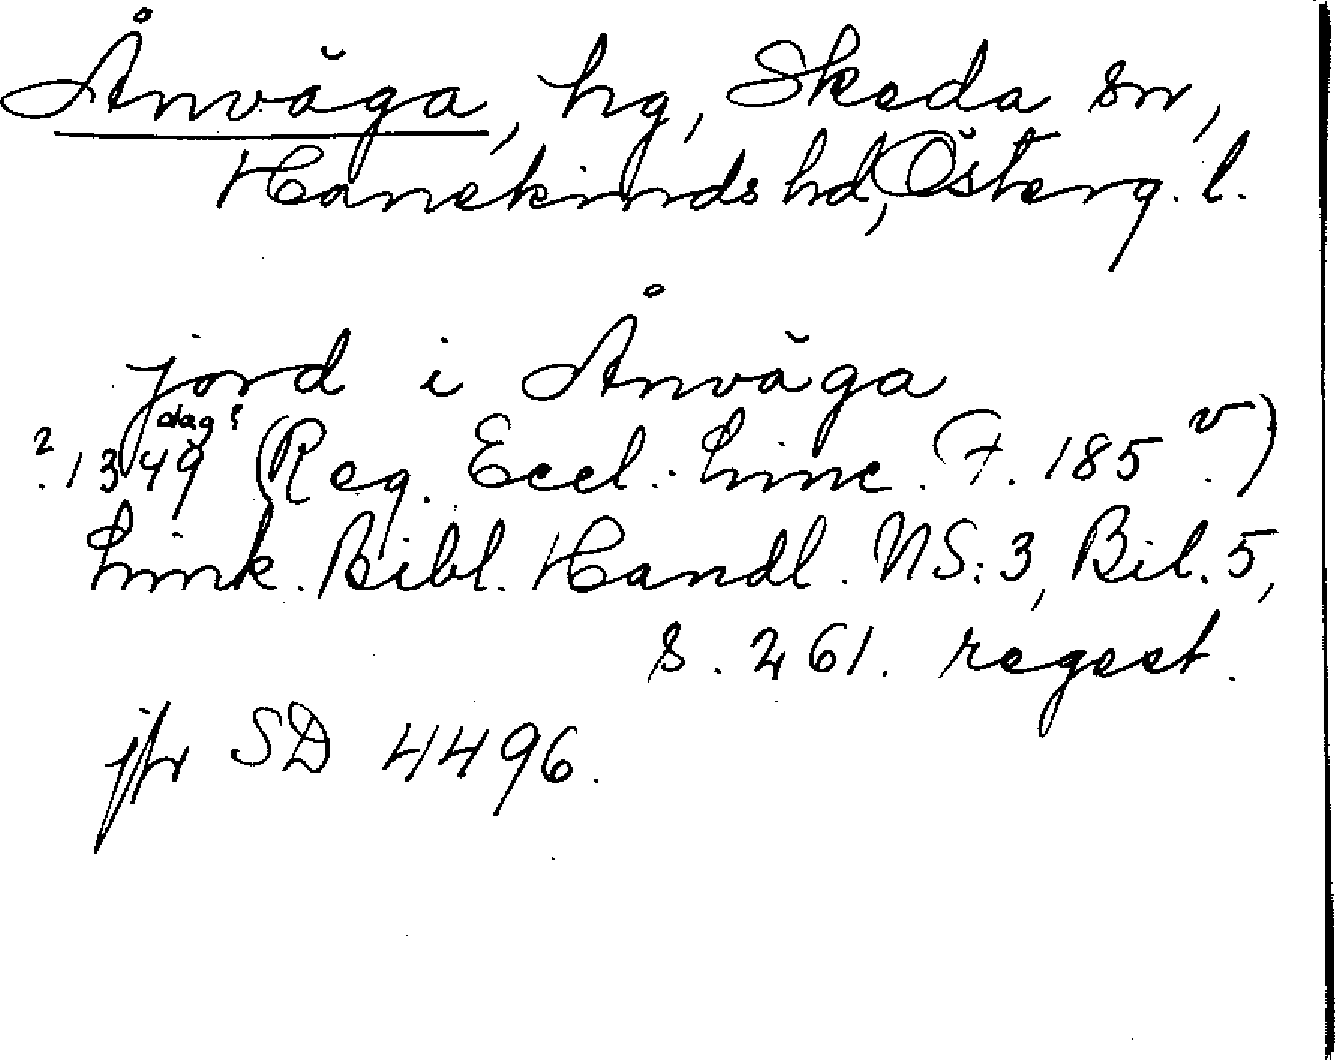 Ånväga, hg, Skeda sn,
Hanekinds hd, Österg. l.
jord i Ånväga
dag?
?.1349 (Reg. Eccl. Linc. F. 185 v.)
Link. Bibl. Handl. NS: 3, Bil. 5,
s. 261. regest.
jfr SD 4496.